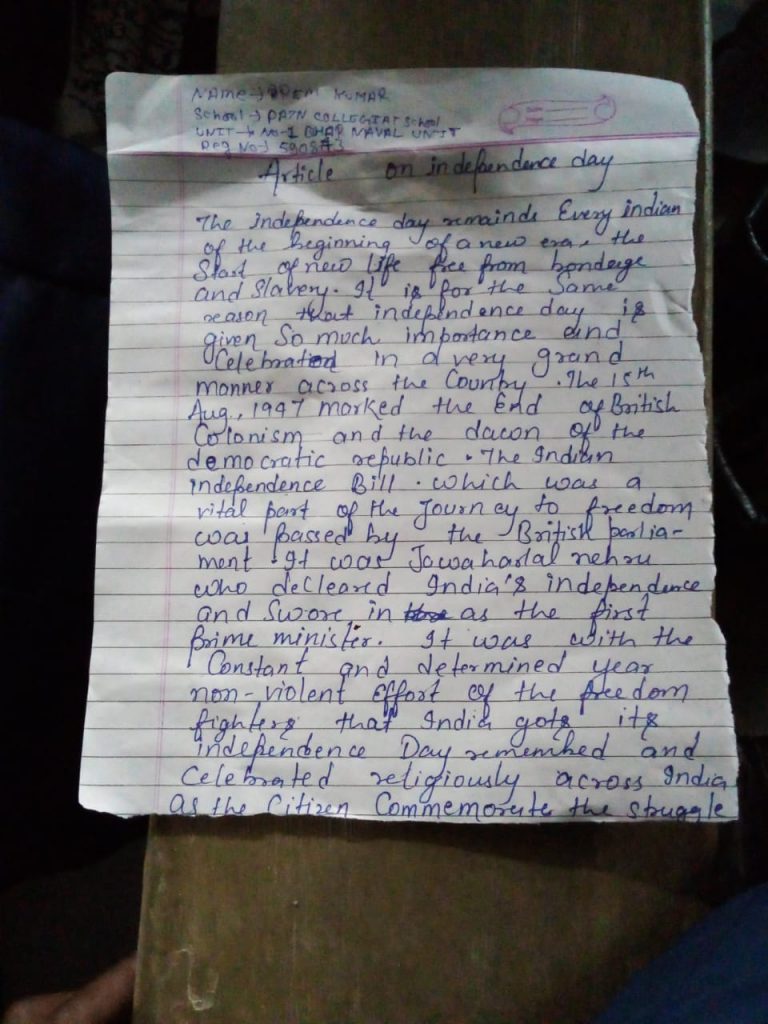 NAme → PREM KUMAR
School → PATN COLLEGIAT School
UNIT → No-1 BHAR NAVAL UNIT
Reg No →
Article on independence day
The independence day remainds Every indian
of the beginning of a new era, the
Start of new life free from bondage
and Slavery. It is for the Same
reason that independence day is
given So much importance and
Celebration in a very grand
manner across the Country. The 15th
Aug, 1947 marked the End of British
Colonism and the dacon of the
democratic republic. The Indian
independence Bill. which was a
vital part of the Journey to freedom
was passed by the British parlia-
ment. It was Jawaharlal nehru
who decleared India's independence
and Swore in as the first
prime minister. It was with the
Constant and determined year
non-violent Effort of the freedom
fighters that India gots its
independence Day remembed and
Celebrated religiously across India
as the Citizen Commemorate the struggle